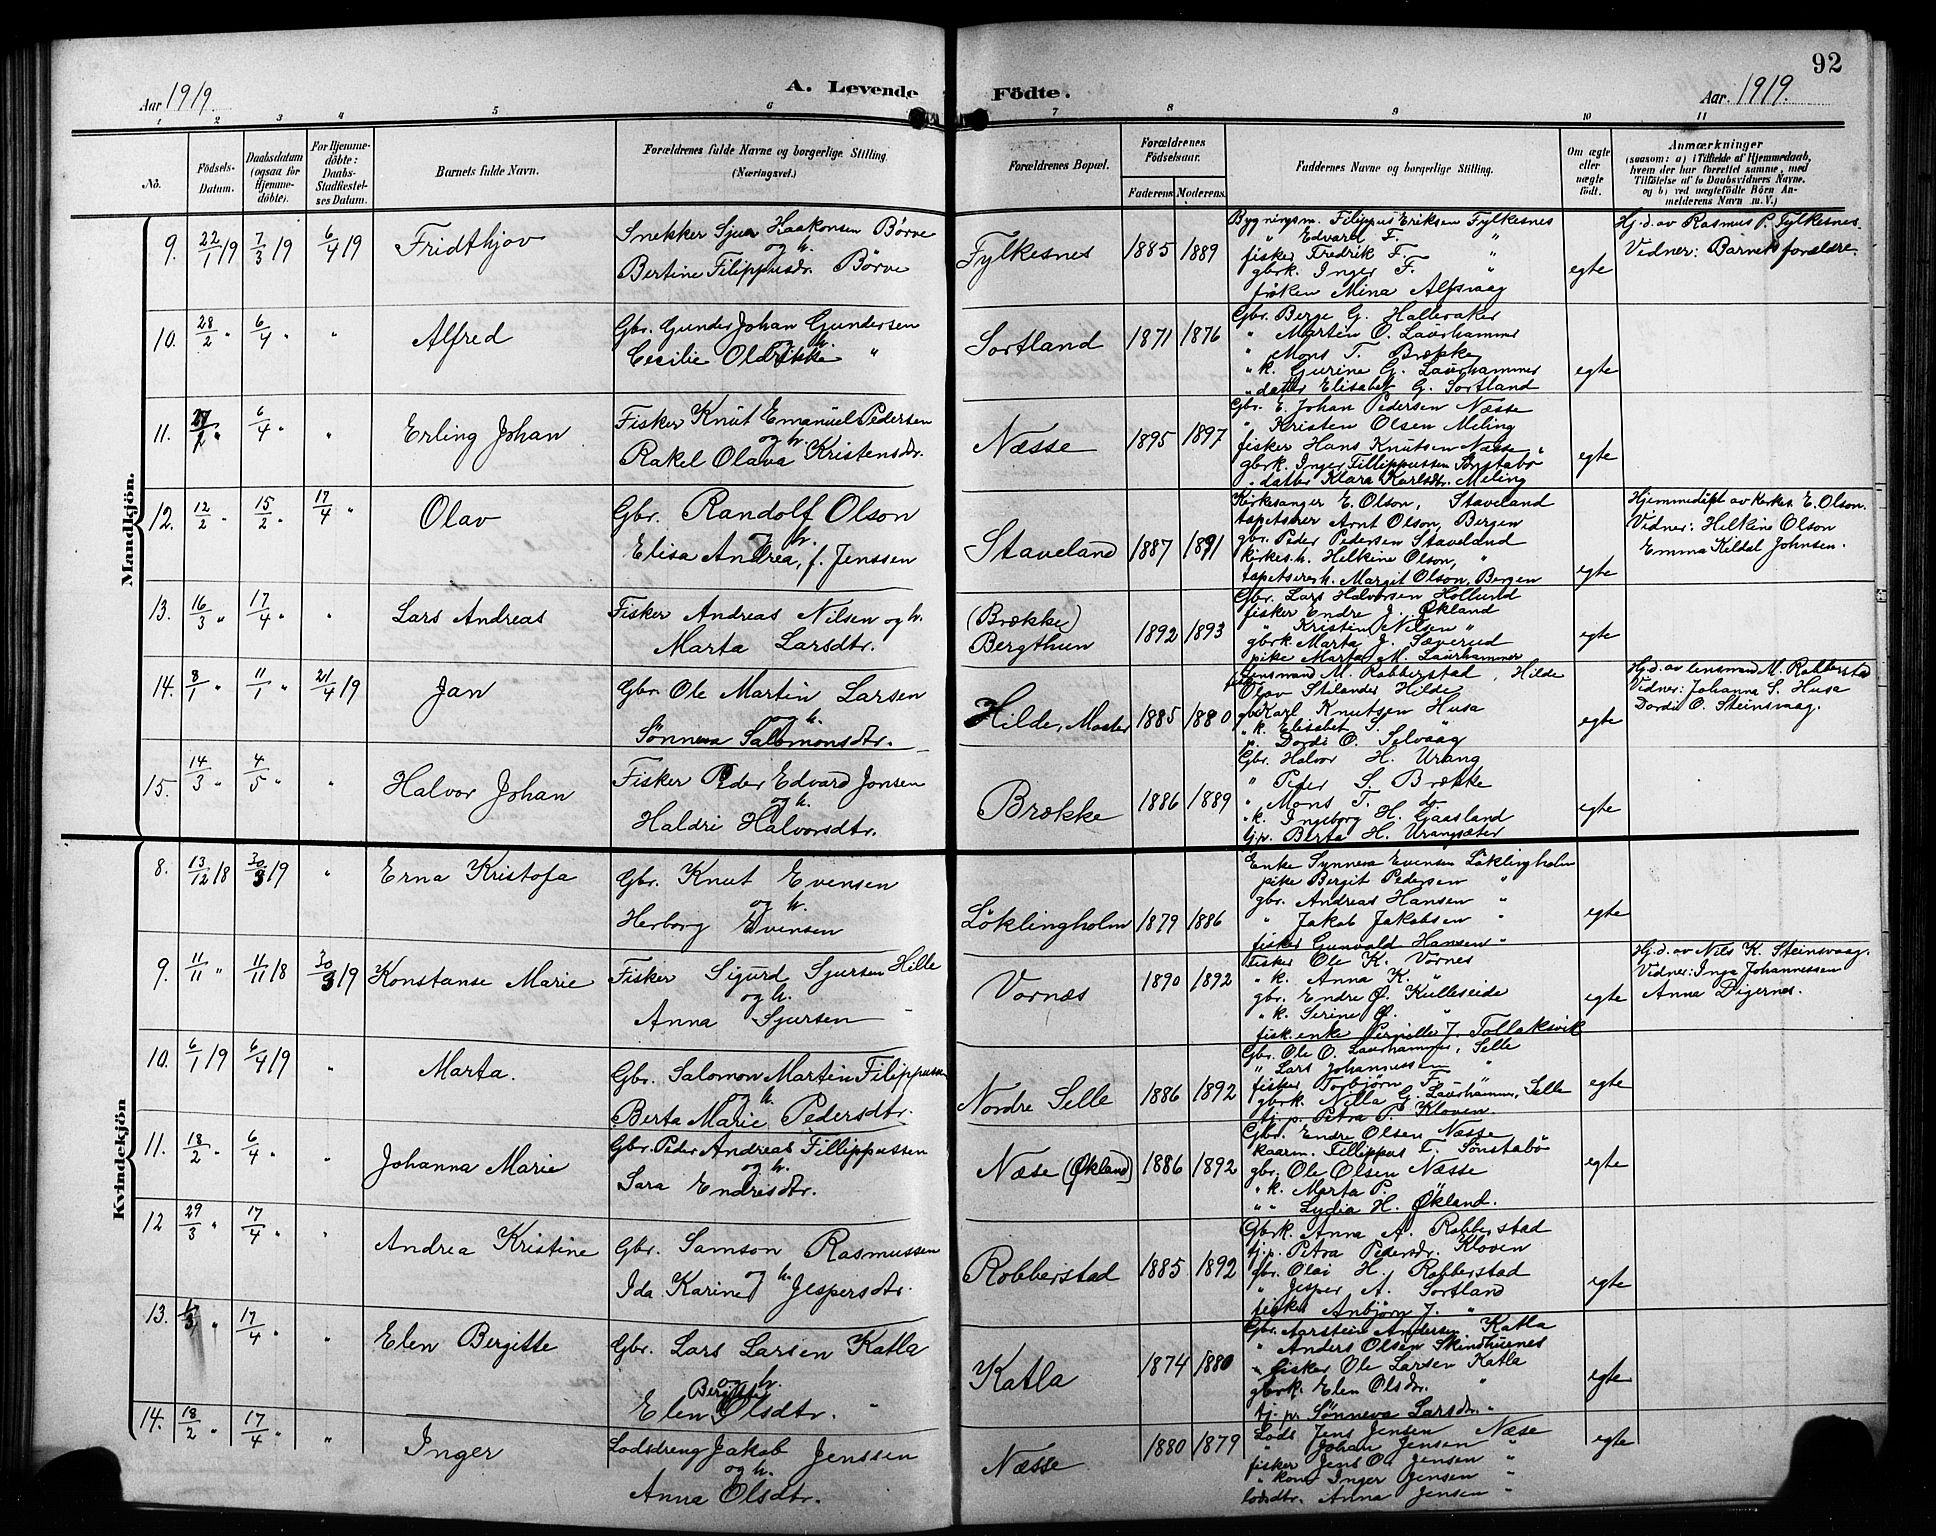 92
Aar 1919. A. Levende Födte. Aar. 1919.
1 2 3 4 5 6 7 8 9 10 11
No.
Födsels-
Datum.
Daabsdatum
(ogsaa for
Hjemme-
döbte).
For Hjemme-
döbte:
Daabs-
Stadfæstel-
ses Datum.
Barnets fulde Navn.
Forældrenes fulde Navne og borgerlige Stilling.
(Næringsvei.)
Forældrenes Bopæl.
Forældrenes
Födselsaar.
Faderens Moderens.
Faddernes Navne og borgerlige Stilling.
Om ægte
eller
uægte
födt.
Anmærkninger
(saasom: a) i Tilfælde af Hjemmedaab,
hvem der har forrettet samme, med
Tilföielse af to Daabsvidners Navne,
og b) ved uægtefödte Börn An-
melderens Navn m. V.)
Mandkjön.
9. 22/1 19 7/3 19 6/4 19 Fridthjov
Snekker Sjur Haakonsen Børve
og h.
Bertine Filippusdr. Børve
Fylkesnes 1885 1889
Bygningsm. Filippus Eriksen Fylkesnes
" Edvard F. "
fisker Fredrik F. "
gbrk. Inger F. "
frøken Mina Alfsvaag
egte
Hj.d. av Rasmus P. Fylkesnes.
Vidner: Barnets forældre.
10. 28/2 " 6/4 " " Alfred
Gbr. Gunder Johan Gundersen
og h.
Cecilie Oldrikke "
Sortland 1871 1876
Gbr. Berge G. Halleraker
" Martin O. Laurhammer
" Mons T. Brække
" k. Gurine G. Laurhammer
" datter Elisabet G. Sortland
egte
11. " 6/4 " " Erling Johan
Fisker Knut Emanuel Pedersen
og h.
Rakel Olava Kristensdr.
Næsse 1895 1897
Gbr. E. Johan Pedersen Næsse
" Kristen Olsen Meling
fisker Hans Knutsen Næsse
gbrk. Inger Fillippussen Sønstabø
" datter Klara Karlsdtr. Meling
egte
12. 12/2 " 15/2 " 17/4 " Olav
Gbr. Randolf Olson
og h.
Elisa Andrea, f. Jenssen
Staveland 1887 1891
Kirkesanger E. Olson, Staveland
tapetserer Arnt Olson, Bergen
gbr. Peder Pedersen Staveland
kirkes.h. Helkine Olson, "
tapetsererh. Margit Olson, Bergen
egte
Hjemmedøpt av kerkes. E. Olson.
Vidner: Helkine Olson
Emma Kildal Johnsen.
13. 16/3 " 17/4 " " Lars Andreas
Fisker Andreas Nilsen og h.
Marta Larsdtr.
(Brække)
Bergthun 1892 1893
Gbr. Lars Halvorsen Hollund
fisker Endre J. Økland
" Kristin Nilsen "
gbrk. Marta J. Sæverud
pike Marta M. Laurhammer
egte
14. 8/1 " 11/1 " 21/4 19 Jan
Gbr. Ole Martin Larsen
og h.
Sønneva Salomonsdtr.
Hilde, Moster 1885 1880
Lensmand M. Robberstad, Hilde
Olav Hilde
gbr. Karl Knutsen Husa
" k. Elisabet S. "
p. Dordi O. Selvaag
egte
Hj.d. av lensmand M. Robberstad
Vidner: Johanna S. Husa
Dordi O. Steinsvaag.
15. 14/3 " 4/5 " " Halvor Johan
Fisker Peder Edvard Jonsen
og h.
Haldri Halvorsdtr.
Brække 1886 1889
Gbr. Halvor H. Urang
" Peder S. Brække
" Mons T. do
" k. Ingeborg H. Gaasland
tj.p. Berta H. Urangsæter
egte
Kvindekjön
8. 13/12 18 30/3 19 " Erna Kristofa
Gbr. Knut Evensen
og h.
Herborg Evensen
Löklingholm 1879 1886
Enke Synneva Evensen Löklingholm
pike Bergit Pedersen "
gbr. Andreas Hansen "
" Jakob Jakobsen "
fisker Gunvald Hansen "
egte
9. 11/11 " 11/11 18 30/3 19 Konstanse Marie
Fisker Sigurd Sjursen Hille
og h.
Anna Sjursen "
Vornæs 1890 1892
Fisker Ole K. Vornes
" k. Anna K. "
gbr. Endre Ø. Kulleseide
" k. Serine Ø. "
fisk.enke Pernille J. Tollaksvik
egte
Hj.d. av Nils K. Steinsvaag.
Vidner: Inga Johannessen
Anna Digernes.
10. 6/1 19 6/4 19 " Marta.
Gbr. Salomon Martin Filippussen
og h.
Berta Marie Pedersdtr.
Nordre Selle 1886 1892
Gbr. Ole O. Laurhammer, Selle
" Lars Johannessen "
fisker Torbjørn F. "
gbrk. Nilla G. Laurhammer, Selle
tj.p. Petra P. Kloven.
egte
11. 18/2 " 6/4 " " Johanna Marie
Gbr. Peder Andreas Fillippussen
og h.
Sara Endresdtr.
Næse (Økland) 1886 1892
Gbr. Endre Olsen Næsse
kaarm. Fillippus E. Sönstabö
gbr. Ole Olsen Næsse
" k. Marta P. "
" " Lydia H. Økland.
egte
12 29/3 " 17/4 " " Andrea Kristine
Gbr. Samson Rasmussen
og h.
Ida Karine Jespersdtr.
Robberstad 1885 1892
Gbrk. Anna A. Robberstad
tj.p. Petra Pedersdr. Kloven
gbr. Olai H. Robberstad
" Jesper A. Sortland
fisker Anbjørn J. "
egte
13. " 17/4 " " Elen Bergitte
Gbr. Lars Larsen Katla
og h.
Bergitte
Elen Olsdtr. "
Katla 1874 1880
Gbr. Aarstein Andersen Katla
" Anders Olsen Skindhusnes
" fisker Ole Larsen Katla
gbrk. Elen Olsdr. "
tj.p. Sønneva Larsdtr. "
egte
14. 18/2 " 17/4 " " Inger
Lodsdreng Jakob Jenssen
og h.
Anna Olsdtr.
Næsse 1880 1879
Lods Jens Jensen Næse
" Johan Jensen "
fisker Jens O. Jensen "
" kone Inger Jensen "
lodsdtr. Anna Jensen "
egte